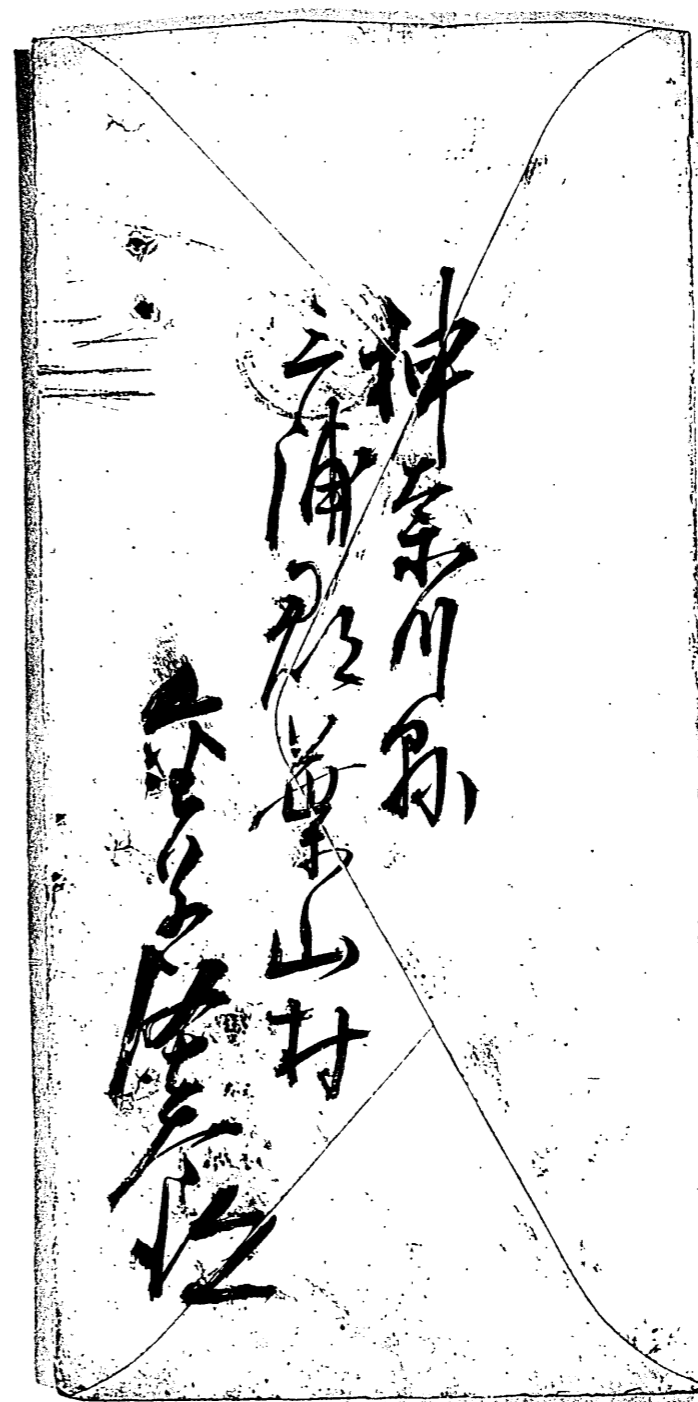 神奈川縣
三浦郡葉山村
金子堅太郎